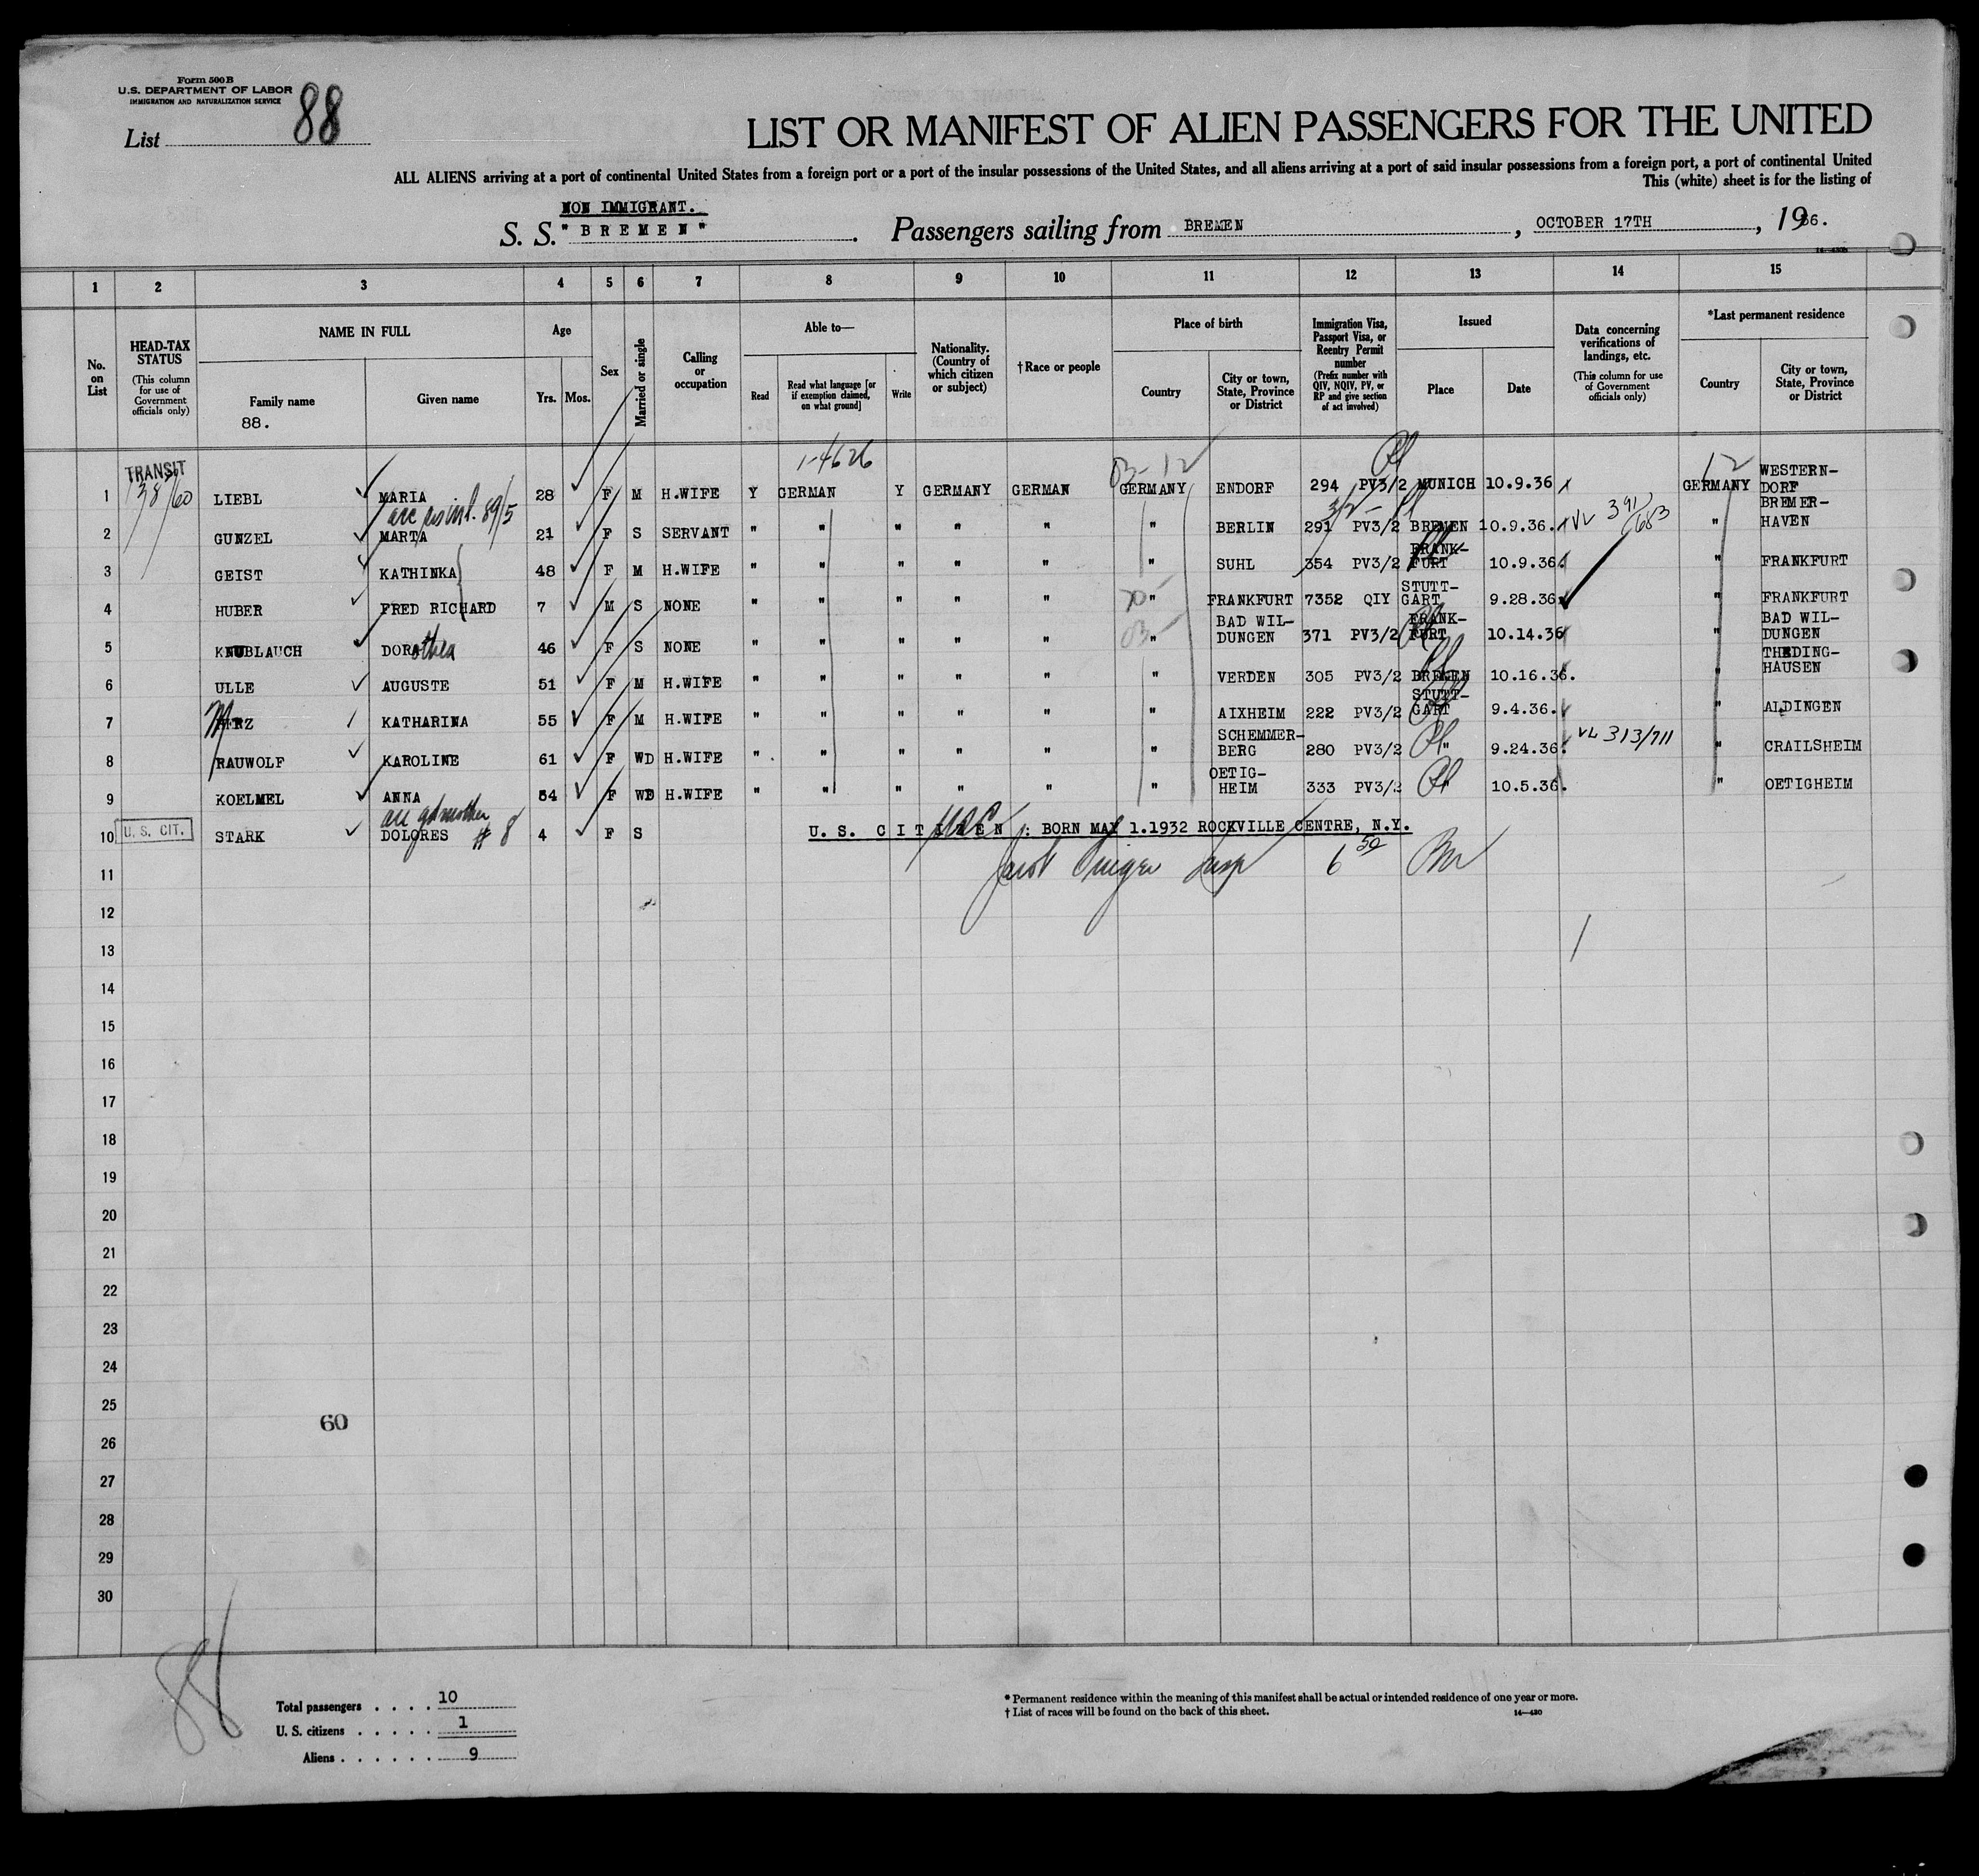 Form 500 B
U.S. DEPARTMENT OF LABOR
IMMIGRATION AND NATURALIZATION SERVICE
List 88
LIST OR MANIFEST OF ALIEN PASSENGERS FOR THE UNITED
ALL ALIENS arriving at a port of continental United States from a foreign port or a port of the insular possessions of the United States, and all aliens arriving at a port of said insular possessions from a foreign port, a port of continental United
This (white) sheet is for the listing of
NON IMMIGRANT.
S. S. "BREMEN" . Passengers sailing from BREMEN , OCTOBER 17TH , 1936.
1 2 3 4 5 6 7 8 9 10 11 12 13 14 15
No. on List
HEAD-TAX STATUS (This column for use of Government officials only)
NAME IN FULL Family name Given name
88.
Age Yrs. Mos.
Sex
Married or single
Calling or occupation
Able to— Read Read what language [or if exemption claimed, on what ground] Write
Nationality. (Country of which citizen or subject)
†Race or people
Place of birth Country City or town, State, Province or District
Immigration Visa, Passport Visa, or Reentry Permit number (Prefix number with QIV, NQIV, PV, or RP and give section of act involved)
Issued Place Date
Data concerning verifications of landings, etc. (This column for use of Government officials only)
*Last permanent residence Country City or town, State, Province or District
TRANSIT 1-4626 03-12 12
1 LIEBL MARIA 28 F M H.WIFE Y GERMAN Y GERMANY GERMAN GERMANY ENDORF 294 PV3/2 MUNICH 10.9.36 GERMANY WESTERN-DORF
89/5
2 GUNZEL MARTA 21 F S SERVANT " " " " " " BERLIN 291 PV3/2 BREMEN 10.9.36. VL 391/683 " BREMER-HAVEN
3 GEIST KATHINKA 48 F M H.WIFE " " " " " " SUHL 354 PV3/2 FRANK-FURT 10.9.36. " FRANKFURT
4 HUBER FRED RICHARD 7 M S NONE " " " " " " FRANKFURT 7352 QIY STUTT-GART 9.28.36 " FRANKFURT
5 KNUBLAUCH DORothea 46 F S NONE " " " " " " BAD WIL-DUNGEN 371 PV3/2 FRANK-FURT 10.14.36 " BAD WIL-DUNGEN
6 ULLE AUGUSTE 51 F M H.WIFE " " " " " " VERDEN 305 PV3/2 BREMEN 10.16.36. " THEDING-HAUSEN
7 KATHARINA 55 F M H.WIFE " " " " " " AIXHEIM 222 PV3/2 STUTT-GART 9.4.36. " ALDINGEN
8 RAUWOLF KAROLINE 61 F WD H.WIFE " " " " " " SCHEMMER-BERG 280 PV3/2 " 9.24.36. VL 313/711 " CRAILSHEIM
9 KOELMEL ANNA 54 F WD H.WIFE " " " " " " OETIG-HEIM 333 PV3/2 " 10.5.36. " OETIGHEIM
acc gdmother # 8
10 U. S. CIT. STARK DOLORES 4 F S U.S. CITIZEN : BORN MAY 1.1932 ROCKVILLE CENTRE, N.Y.
11
12
13
14
15
16
17
18
19
20
21
22
23
24
25
60
26
27
28
29
30
88
Total passengers . . . . 10
U. S. citizens . . . . . 1
Aliens . . . . . . 9
* Permanent residence within the meaning of this manifest shall be actual or intended residence of one year or more.
† List of races will be found on the back of this sheet. 14—430